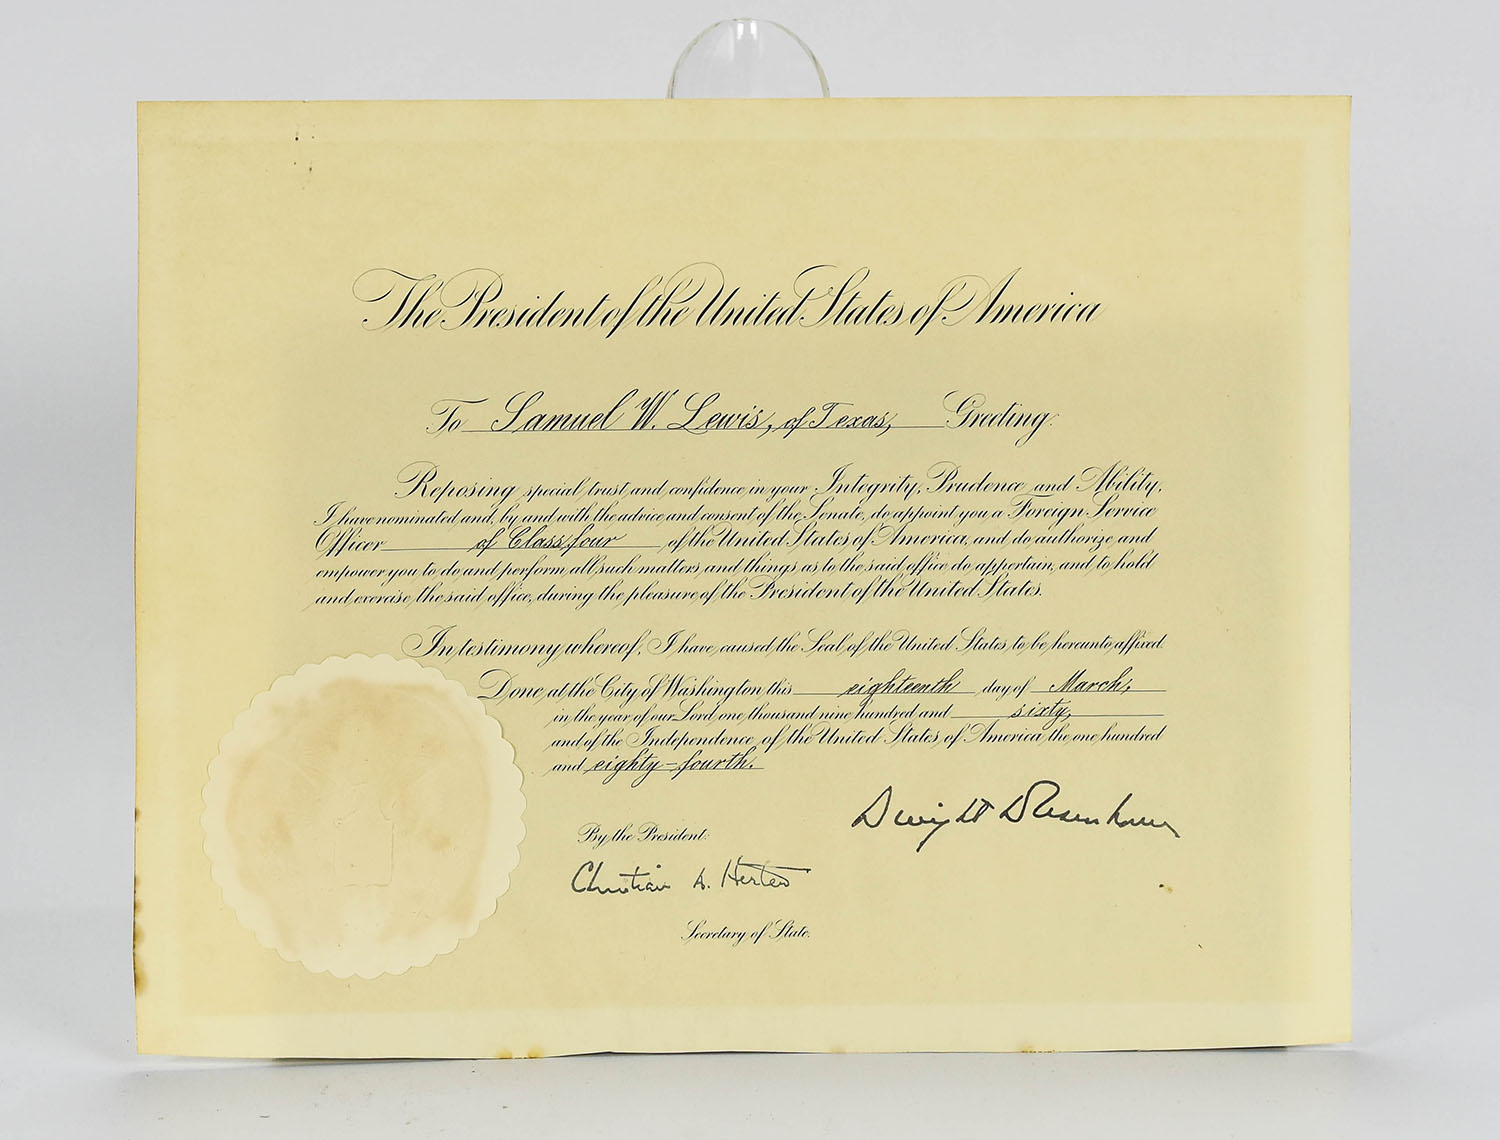 The President of the United States of America
To Samuel W. Lewis, of Texas, Greeting:
Reposing special trust and confidence in your Integrity, Prudence and Ability,
I have nominated and, by and with the advice and consent of the Senate, do appoint you a Foreign Service
Officer of Class four of the United States of America, and do authorize and
empower you to do and perform all such matters and things as to the said office do appertain, and to hold
and exercise the said office, during the pleasure of the President of the United States.
In testimony whereof, I have caused the Seal of the United States to be hereunto affixed.
Done at the City of Washington this eighteenth day of March,
in the year of our Lord one thousand nine hundred and sixty,
and of the Independence of the United States of America the one hundred
and eighty-fourth.
Dwight D Eisenhower
By the President:
Christian A. Herter
Secretary of State.